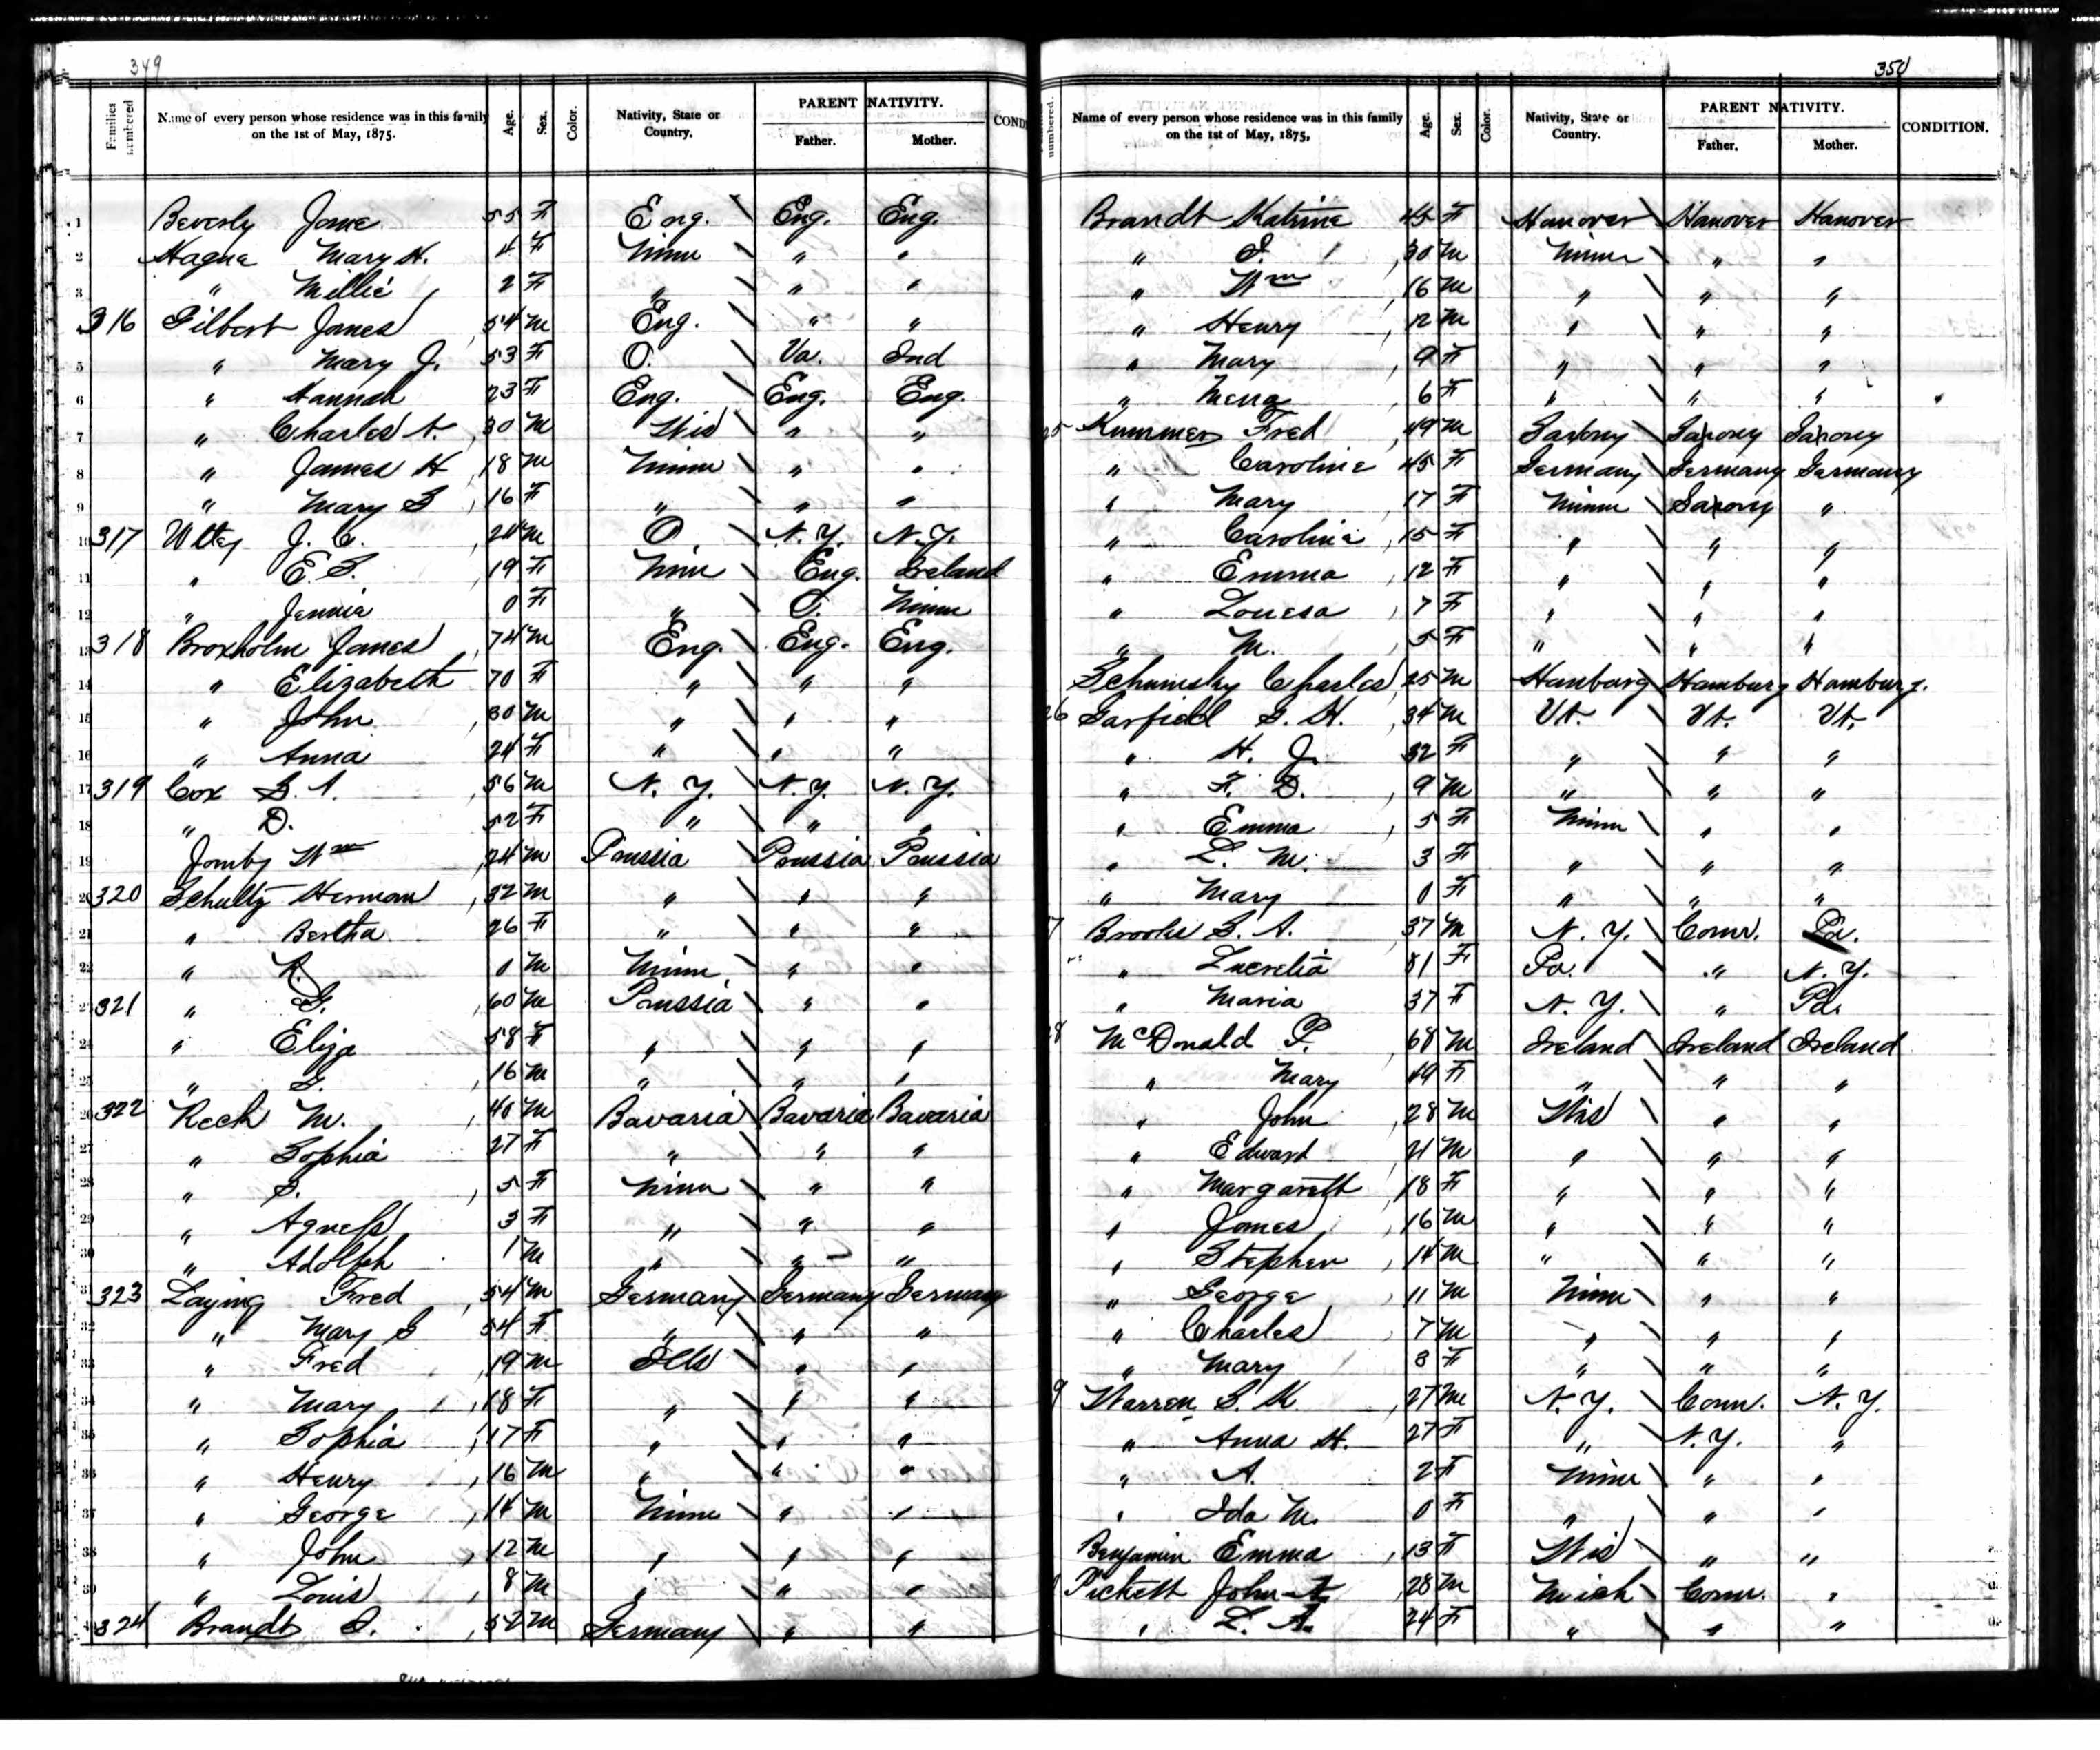 349
Families numbered
Name of every person whose residence was in this family on the 1st of May, 1875.
Age.
Sex.
Color.
Nativity, State or Country.
PARENT NATIVITY.
Father.
Mother.
COND
1 Beverly Jane 55 F Eng. Eng. Eng.
2 Hague Mary H. 4 F Minn " "
3 " Millie 2 F " " "
316 Gilbert James 54 M Eng. " "
5 " Mary J. 53 F O. Va. Ind
6 " Hannah 23 F Eng. Eng. Eng.
7 " Charles A. 30 M Wis " "
8 " James H 18 M Minn " "
9 " Mary S 16 F " " "
10 317 J. C. 24 M O. N.Y. N.Y.
11 " E. S. 19 F Minn Eng. Ireland
12 " Jennie 0 F " O. Minn
13 318 Broxholm James 74 M Eng. Eng. Eng.
14 " Elizabeth 70 F " " "
15 " John 30 M " " "
16 " Anna 24 F " " "
17 319 Cox S. A. 56 M N.Y. N.Y. N.Y.
18 " D. 52 F " " "
19 Wm 24 M Prussia Prussia Prussia
20 320 Schultz Herman 32 M " " "
21 " Bertha 26 F " " "
22 " R. 0 M Minn " "
23 321 " G. 60 M Prussia " "
24 " Eliza 58 F " " "
25 " S. 16 M " " "
26 322 Rech M. 40 M Bavaria Bavaria Bavaria
27 " Sophia 27 F " " "
28 " S. 5 F Minn " "
29 " Agness 3 F " " "
30 " Adolph 1 M " " "
31 323 Laying Fred 54 M Germany Germany Germany
32 " Mary S 54 F " " "
33 " Fred 19 M Ills " "
34 " Mary 18 F " " "
35 " Sophia 17 F " " "
36 " Henry 16 M " " "
37 " George 14 M Minn " "
38 " John 12 M " " "
39 " Louis 8 M " " "
324 Brandt 52 M Germany " "
350
numbered.
Name of every person whose residence was in this family on the 1st of May, 1875,
Age.
Sex.
Color.
Nativity, State or Country.
PARENT NATIVITY.
Father.
Mother.
CONDITION.
Brandt Katrine 45 F Hanover Hanover Hanover
" 30 M Minn " "
" Wm 16 M " " "
" Henry 12 M " " "
" Mary 9 F " " "
" Mena 6 F " " "
25 Kummer Fred 49 M Saxony Saxony Saxony
" Caroline 45 F Germany Germany Germany
" Mary 17 F Minn Saxony "
" Caroline 15 F " " "
" Emma 12 F " " "
" Louesa 7 F " " "
" M. 5 F " " "
Schumsky Charles 25 M Hamburg Hamburg Hamburg.
26 Garfield G. H. 34 M Vt. Vt. Vt.
" H. J. 32 F " " "
" F. D. 9 M " " "
" Emma 5 F Minn " "
" L. M. 3 F " " "
" Mary 0 F " " "
7 Brooks S. A. 37 M N.Y. Conn. Pa.
" Lucretia 81 F Pa. " N.Y.
" Maria 37 F N.Y. " Pa.
28 McDonald P. 68 M Ireland Ireland Ireland
" Mary 49 F " " "
" John 28 M Wis " "
" Edward 21 M " " "
" Margarett 18 F " " "
" James 16 M " " "
" Stephen 14 M " " "
" George 11 M Minn " "
" Charles 7 M " " "
" Mary 3 F " " "
9 Warren S. K. 27 M N.Y. Conn. N.Y.
" Anna H. 27 F " N.Y. "
" A. 2 F Minn " "
" Ida M. 0 F " " "
Benjamin Emma 13 F Wis " "
Pickett John 28 M Mich Conn. "
" L. A. 24 F " " "